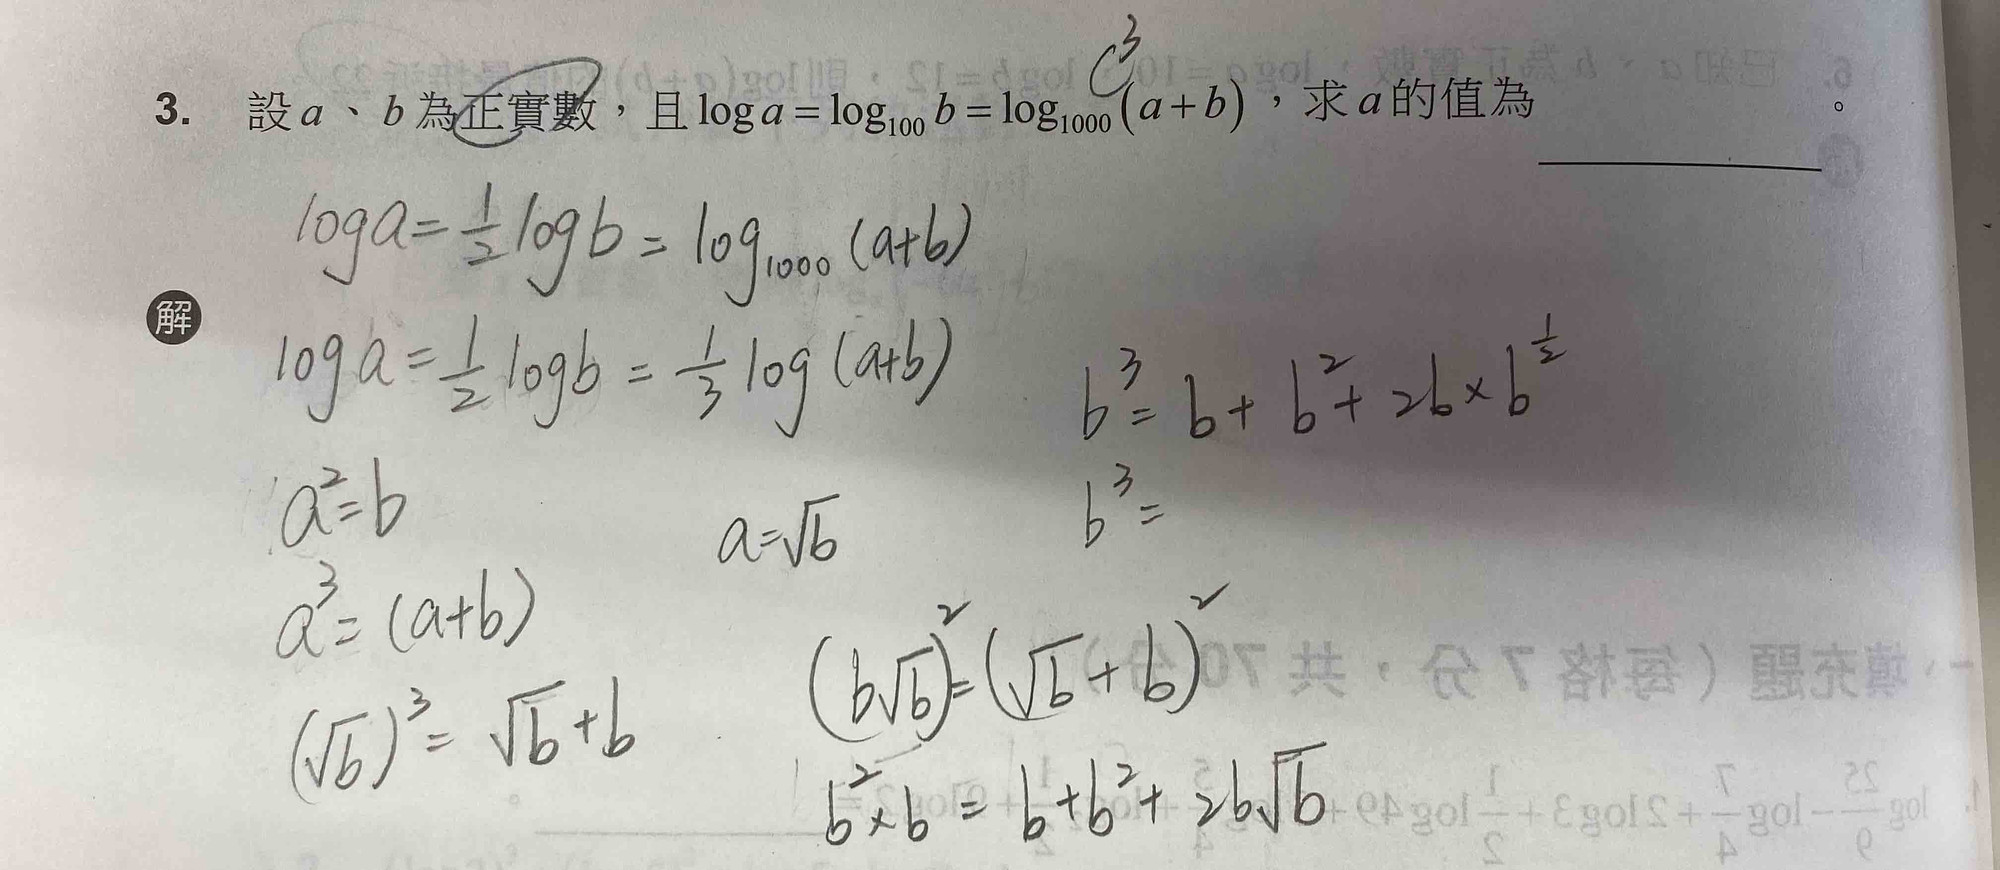 3. 設 a、b 為正實數，且 log a = log₁₀₀ b = log₁₀₀₀ (a+b)，求 a 的值為＿＿＿＿。
log a = 1/2 log b = log₁₀₀₀ (a+b)
解
log a = 1/2 log b = 1/3 log (a+b)
b³ = b + b² + 2b × b^(1/2)
a² = b
a = √b
b³ =
a³ = (a+b)
(√b)³ = √b + b
(b√b)² = (√b + b)²
b² × b = b + b² + 2b√b